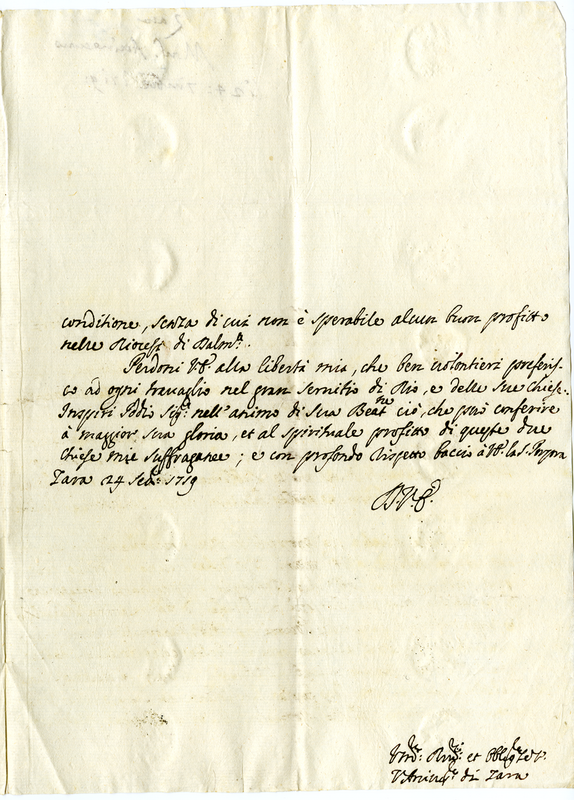 conditione, senza di cui non è sperabile alcun buon profitto
nelle Diocesi di Dalm.ª.
Perdoni V.E. alla libertà mia, che ben volontieri preferis-
co ad ogni travaglio nel gran servitio di Dio, e delle sue Chiese.
Inspiri Iddio Sig.r nell'animo di Sua Beat.ne ciò, che può conferire
à maggior sua gloria, et al spirituale profitto di queste due
Chiese mie suffraganee; e con profondo rispetto baccio à V.E. la S. Porpora
Zara 24 Set. 1719
D.V.E.
et
di Zara